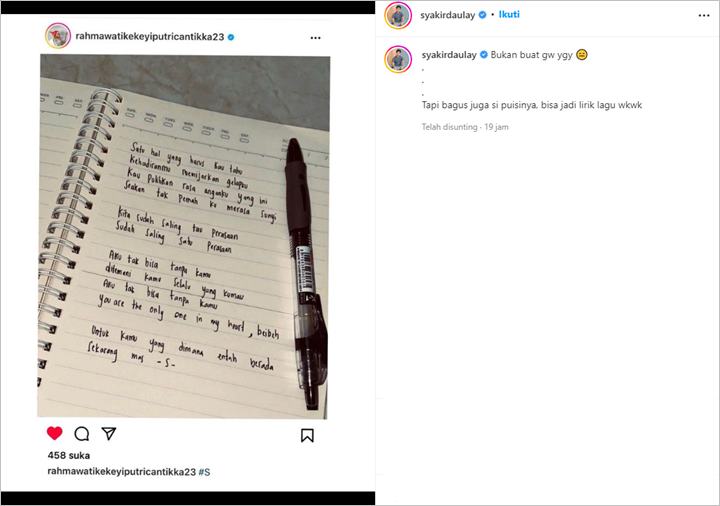 rahmawatikekeyiputricantikka23
Satu hal yang harus kau tahu
Kehadiranmu memijarkan gelapku
Kau pulihkan rasa anganku yang ini
Seakan tak pernah ku merasa sunyi
Kita sudah saling tau perasaan
Sudah saling satu perasaan
Aku tak bisa tanpa kamu
ditemani kamu selalu yang kumau
Aku tak bisa tanpa kamu
you are the only one in my heart, beibeh
Untuk kamu yang dimana entah berada
Sekarang mas -S-
458 suka
rahmawatikekeyiputricantikka23 #S
syakirdaulay • Ikuti
syakirdaulay Bukan buat gw ygy 😄
.
.
.
Tapi bagus juga si puisinya, bisa jadi lirik lagu wkwk
Telah disunting · 19 jam